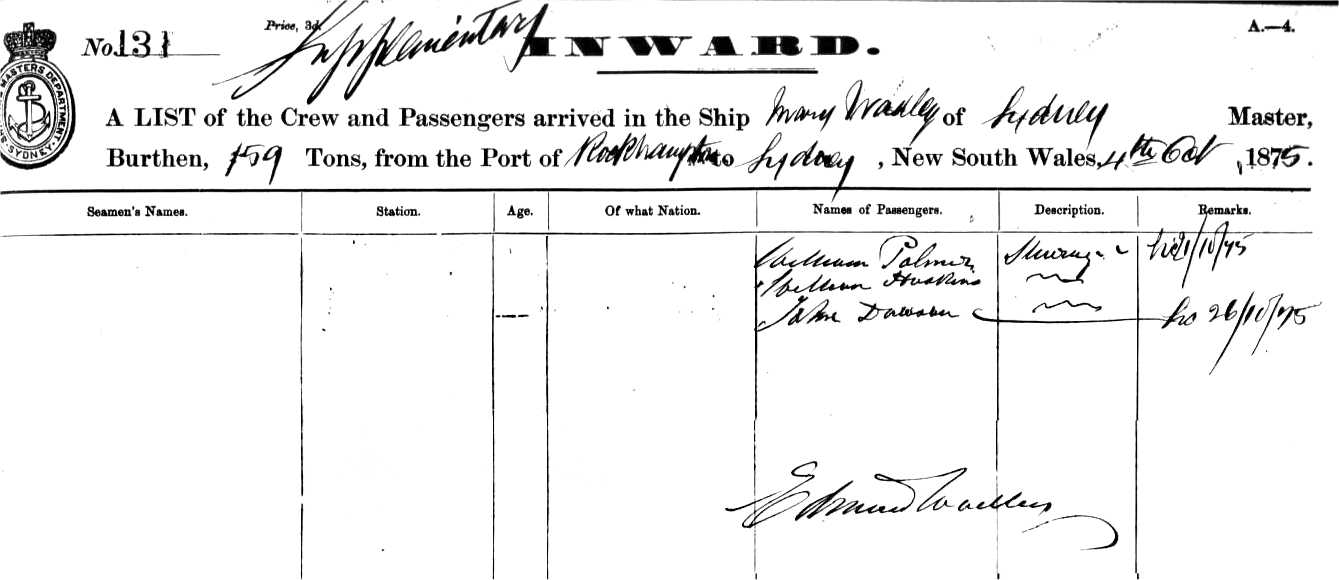 No. 131
Price, 3d.
Supplementary
INWARD.
A.—4.
MASTERS DEPARTMENT
SYDNEY
A LIST of the Crew and Passengers arrived in the Ship Mary Wadley of Sydney Master,
Burthen, 159 Tons, from the Port of Rockhampton to Sydney, New South Wales, 4th Oct 1875.
Seamen's Names. Station. Age. Of what Nation. Names of Passengers. Description. Remarks.
William Palmer Steerage 21/10/75
William Hoskins
John Dawson 26/10/75
Edmund